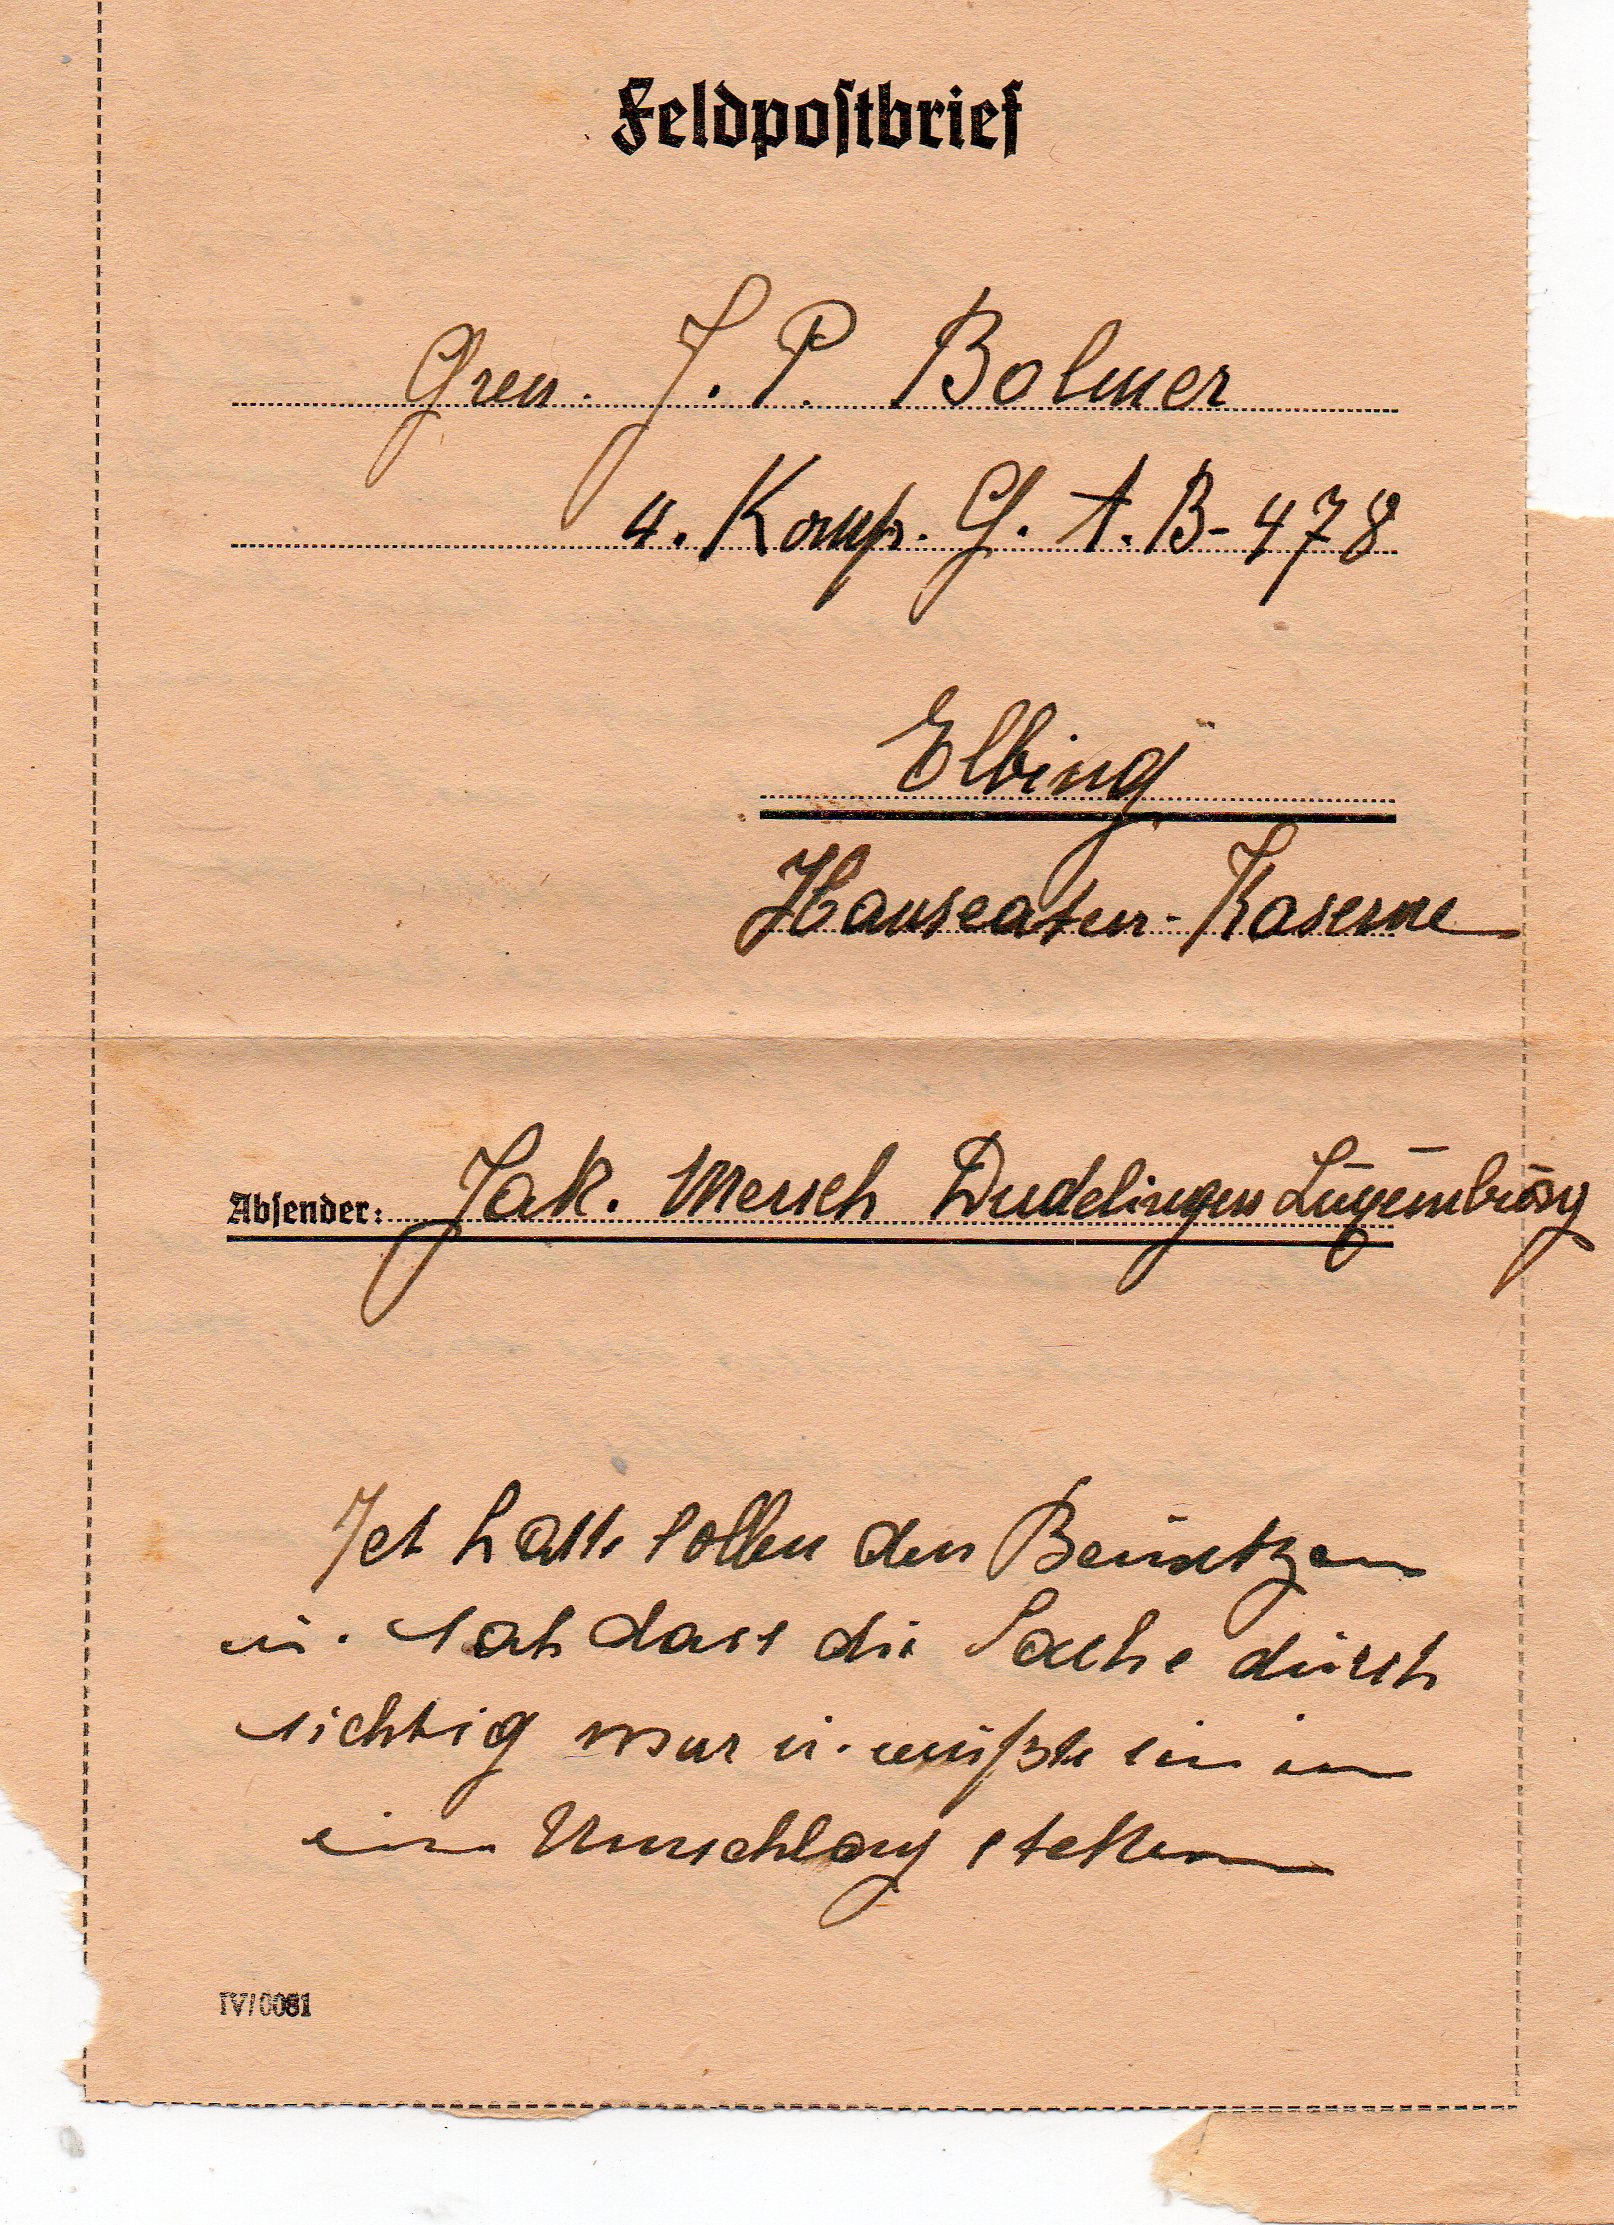 Feldpostbrief
Gren. J. P. Bolmer
4. Komp. G. A. B- 478
Elbing
Hanseaten-Kaserne
Absender: Jak. Mersch Dudelingen Luxemburg
Ich hatte sollen den
u. sah dass die Sache durch
sichtig war u. mußte ein in
ein Umschlag stellen
IV/0081